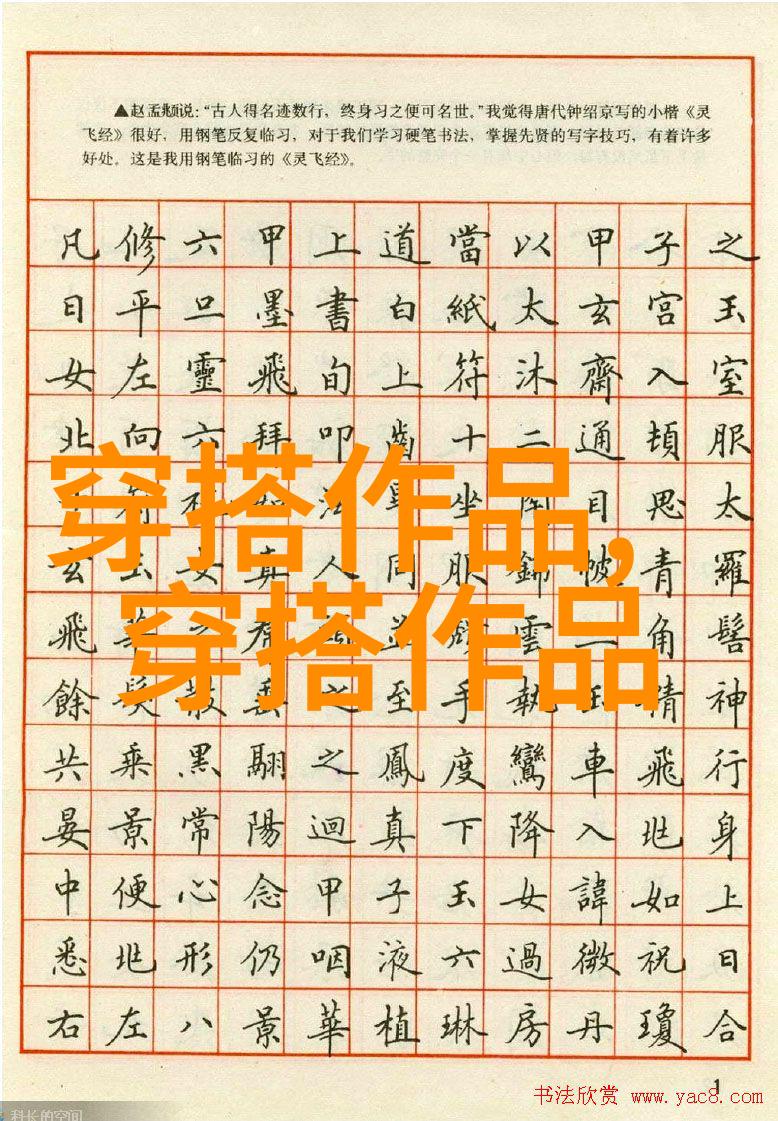 ▲赵孟頫说：“古人得名迹数行，终身习之便可名世。”我觉得唐代钟绍京写的小楷《灵
飞经》很好，用钢笔反复临习，对于我们学习硬笔书法，掌握先贤的写字技巧，有着许多
好处。这是我用钢笔临习的《灵飞经》。
凡修六甲上道當以甲子之
日平旦墨書白紙太玄宮玉
女左靈飛旬上符沐齋入室
北向六拜叩齒十二通頓服
符法坐目思太
玄玉女真人同服錦帔青羅
飛華雲角髻
餘髮散垂之至手執玉精神
共乘黑翮之鳳度鸞車飛行
晏景常陽迴真下降入兆身
中便心念甲子玉女諱如上
悉兆形仍咽液六過微祝日
右左八景華植琳房丹瓊合
穿搭作品,
穿搭作品
1
书法欣赏 www.yac8.com
科长的空间